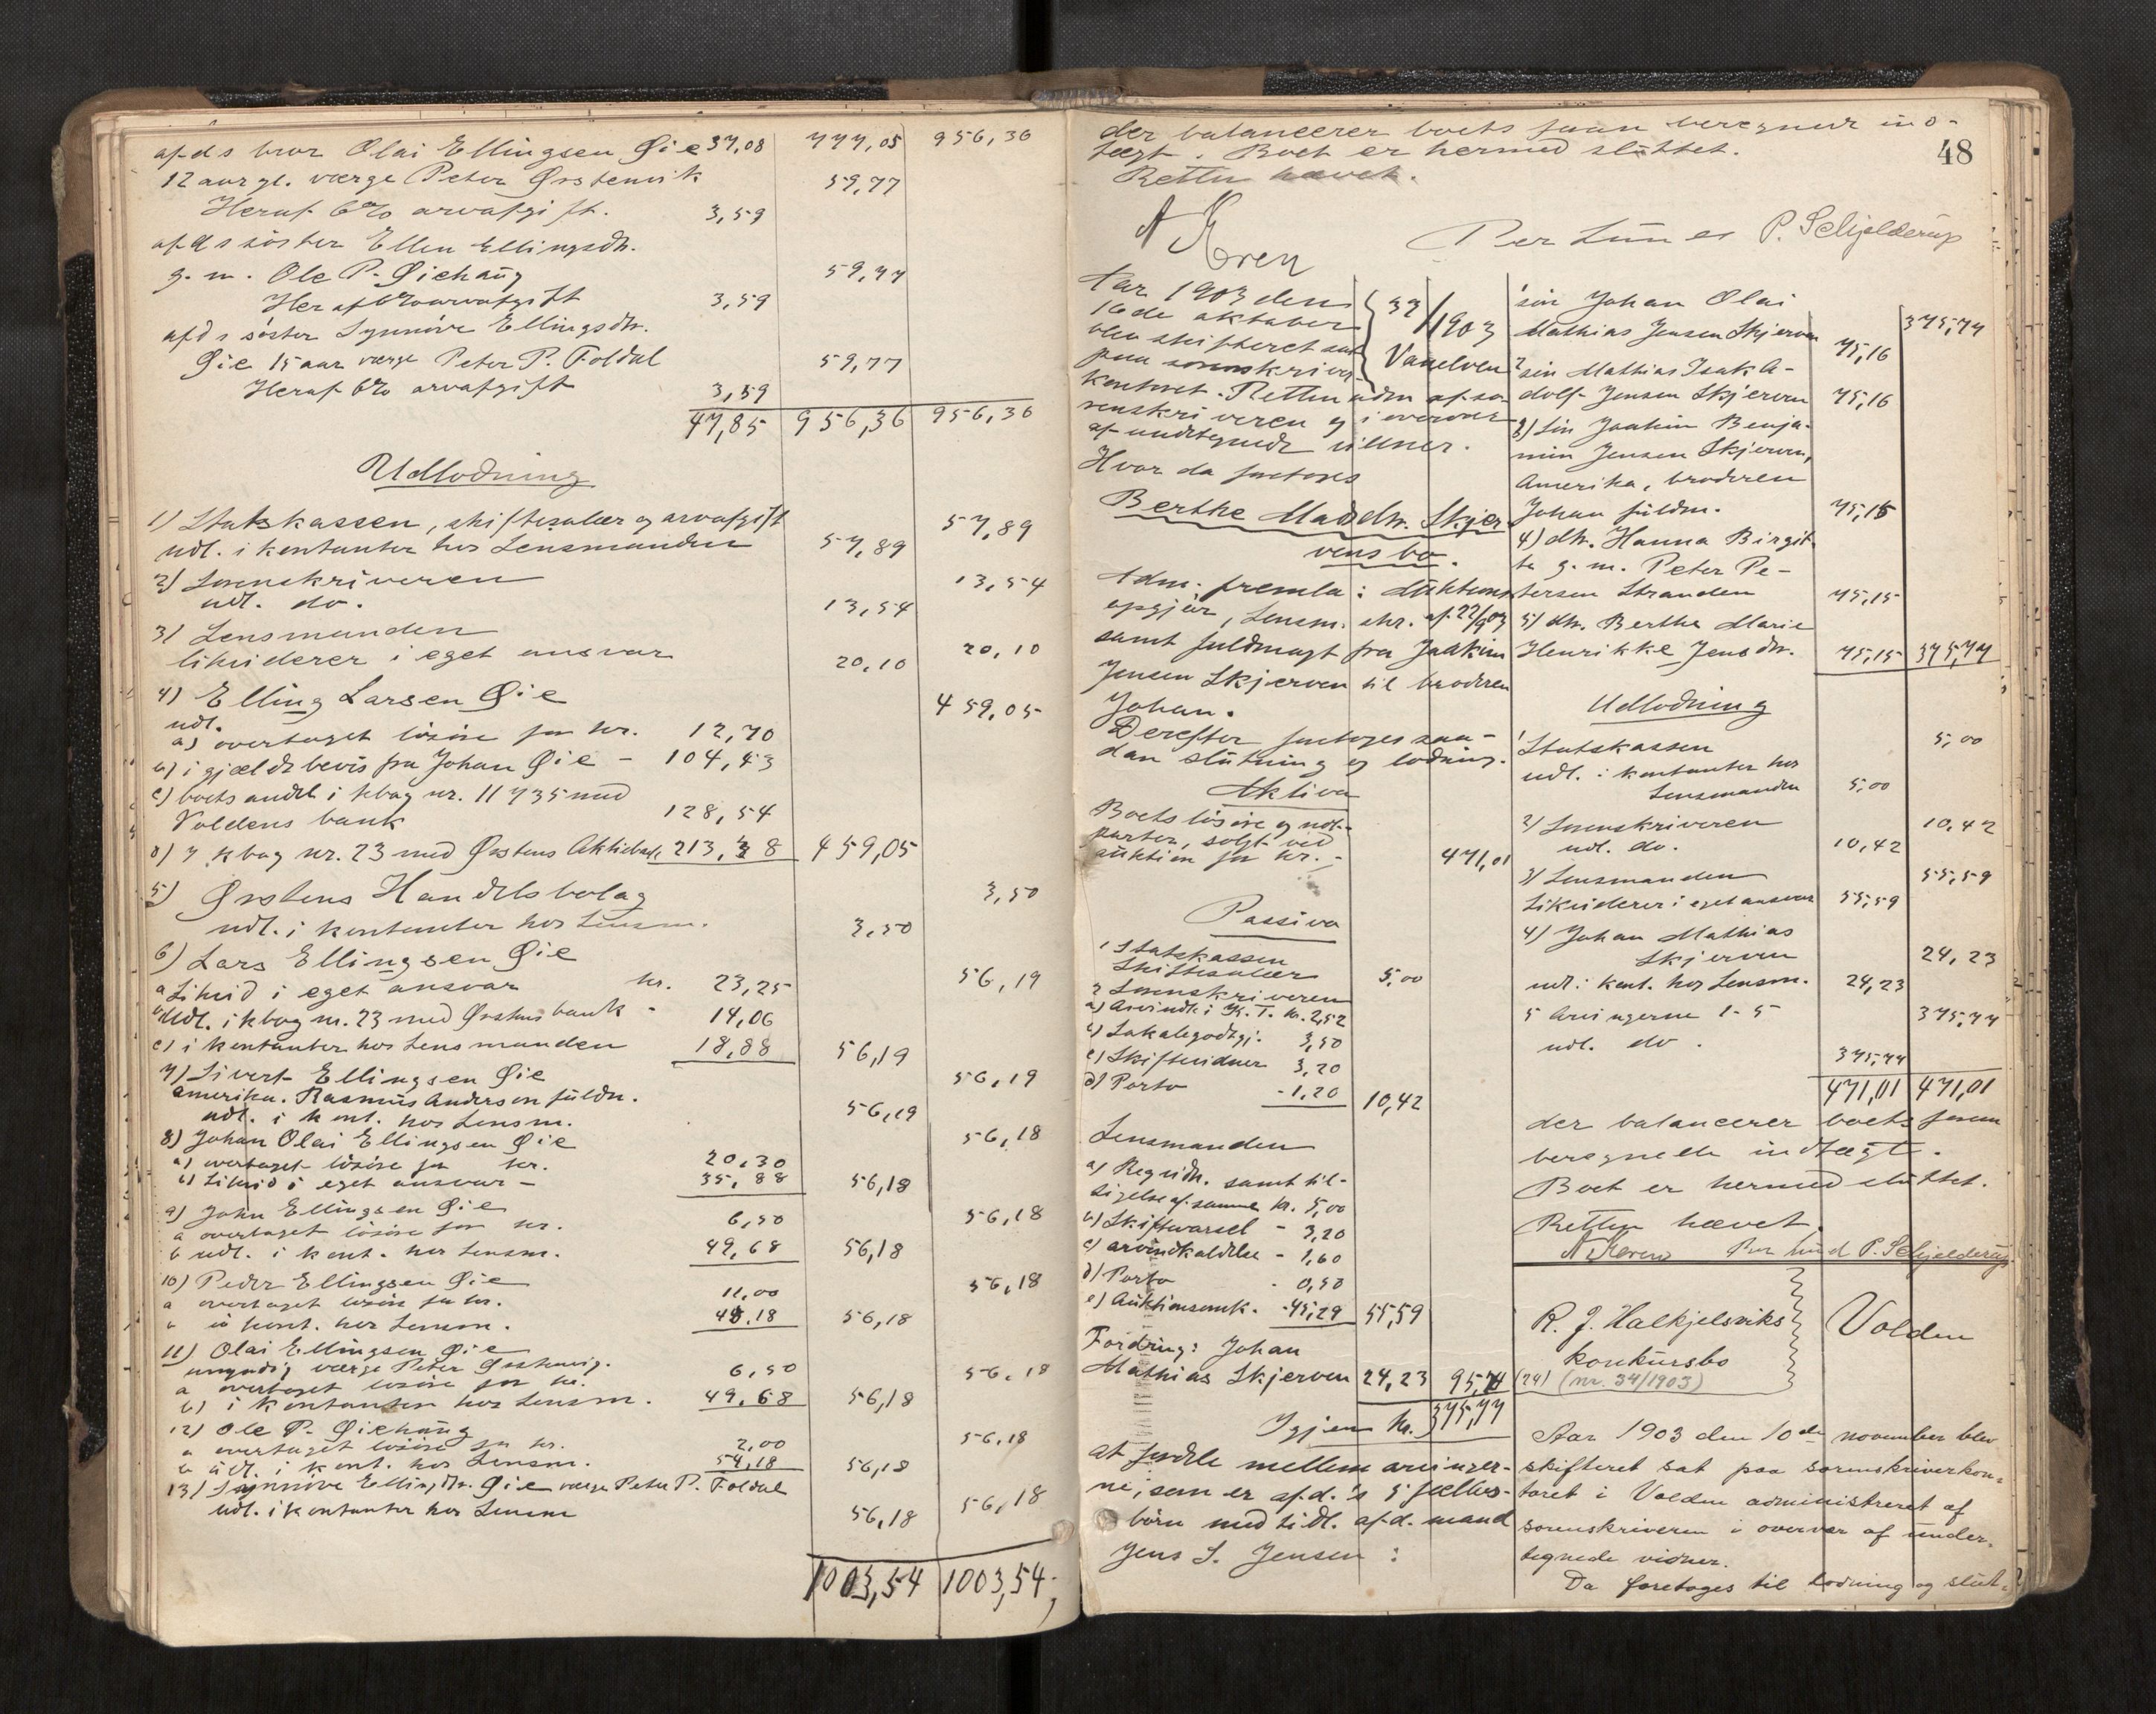 afds bror Olai Ellingsen Øie 37,08 777,05 956,36
12 aar gl. værge Peter Ørstenvik 59,77
Heraf 6% arvafgift. 3,59
afds söster Ellen Ellingsdtr.
g. m. Ole P. Øiehaug 59,77
Heraf 6% arvafgift 3,59
afds söster Synnöve Ellingsdtr.
Øie 15 aar værge Peter P. Foldal 59,77
Heraf 6% arvafgift 3,59
47,85 956,36 956,36
Udlodning
1) Statskassen, skiftesalær og arvafgift 57,89
udl. i kontanter hos Lensmanden 57,89
2) Sorenskriveren 13,54
udl. do. 13,54
3) Lensmanden 20,10
likviderer i eget ansvar 20,10
4) Elling Larsen Øie 459,05
udl.
a) overtaget lösöre for kr. 12,70
b) i gjældsbevis fra Johan Øie - 104,43
c) boets andel i kbog nr. 11735 med
Voldens bank 128,54
d) i kbog nr. 23 med Ørstens Aktiebank 213,38 459,05
5) Ørstens Handelsbolag 3,50
udl. i kontanter hos Lensm. 3,50
6) Lars Ellingsen Øie 56,19
a Likvid i eget ansvar kr. 23,25
b Udl. i kbog nr. 23 med Ørstens bank - 14,06
c) i kontanter hos Lensmanden 18,88 56,19
7) Sivert Ellingsen Øie 56,19
Amerika. Rasmus Anderson fuldm.
udl. i kont. hos Lensm. 56,19
8) Johan Olai Ellingsen Øie 56,18
a) overtaget lösöre for kr. 20,30
b) Likvid i eget ansvar - 35,88 56,18
9) John Ellingsen Øie 56,18
a overtaget lösöre for kr. 6,50
b udl. i kont. hos Lensm. 49,68 56,18
10) Peder Ellingsen Øie 56,18
a overtaget lösöre for kr. 11,00
b i kont. hos Lensm. 45,18 56,18
11) Olai Ellingsen Øie 56,18
umyndig værge Peter Ørstenvig.
a overtaget lösöre for kr. 6,50
b) i kontanter hos Lensm. 49,68 56,18
12) Ole P. Øiehaug 56,18
a overtaget lösöre for kr. 2,00
b udl. i kont. hos Lensm. 54,18 56,18
13) Synnöve Ellingsdtr. Øie værge Peter P. Foldal 56,18
udl. i kontanter hos Lensm 56,18
1003,54 1003,54
48
der balancerer boets saan beregnede ind-
tægt. Boet er hermed sluttet.
Retten hævet.
A Kren
Per Lund P. Schjelderup
Aar 1903 den
16de oktober
blev skifteret sat
paa sorenskriver-
kontoret. Retten adm af so-
renskriveren og i overvær
af undertegnede vidner.
Hvor da foretoges
32/1903
Vanelven
Berthe Madsdtr. Skjer-
vens bo.
Adm. fremla: Auktions-
opgjör, Lensm. skr. af 22/9 03
samt fuldmagt fra Joakim
Jensen Skjerven til broderen
Johan.
Derefter foretoges saa-
dan slutning og lodning.
Aktiva
Boets lösöre og udl.-
parter, solgt ved
auktion for kr. - 471,01
Passiva
1 Statskassen
Skiftesalær 5,00
2 Sorenskriveren
a) Arvindk. i K. T. kr. 2,52
b) Lokalegodtgj. 3,50
c) Skiftevidner 3,20
d) Porto - 1,20 10,42
Lensmanden
a) Registr. samt til-
sigelse af samme kr. 5,00
b) Skiftevarsel - 3,20
c) arvindkaldelse - 1,60
d) Porto - 0,50
e) Auktionsomk. - 45,29 55,59
Fordring: Johan
Mathias Skjerven 24,23 95,24
Igjen kr. 375,77
at fordele mellem arvinger-
ne, som er afd.'s 5 fælles-
börn med tidl. afd. mand
Jens S. Jensen:
375,77
1 sön Johan Olai
Mathias Jensen Skjerven 75,16
2 sön Mathias Isak A-
dolf Jensen Skjerven 75,16
3) Sön Joakim Benja-
min Jensen Skjerven,
Amerika, broderen
Johan fuldm. 75,15
4) dtr. Hanna Birgit-
te g. m. Peter Pe-
tersen Stranden 75,15
5) dtr. Berthe Marie
Henrikke Jensdtr. 75,15 375,77
Udlodning
1 Statskassen 5,00
udl. i kontanter hos
Lensmanden 5,00
2) Sorenskriveren 10,42
udl. do. 10,42
3) Lensmanden 55,59
Likviderer i eget ansvar 55,59
4) Johan Mathias
Skjerven 24,23
udl. i kont. hos Lensm. 24,23
5 Arvingerne 1-5 375,77
udl. do. 375,77
471,01 471,01
der balancerer boets saan
beregnede indtægt.
Boet er hermed sluttet.
Retten hævet.
A Kren Per Lund P. Schjelderup
R. J. Halkjelsviks Volden
konkursbo
(24) (nr. 34/1903)
Aar 1903 den 10de november blev
skifteret sat paa sorenskriverkon-
toret i Volden administreret af
sorenskriveren i overvær af under-
tegnede vidner.
Da foretoges til lodning og slut-